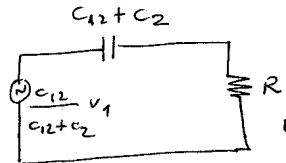 C12 + C2
C12
C12 + C2
V1
R